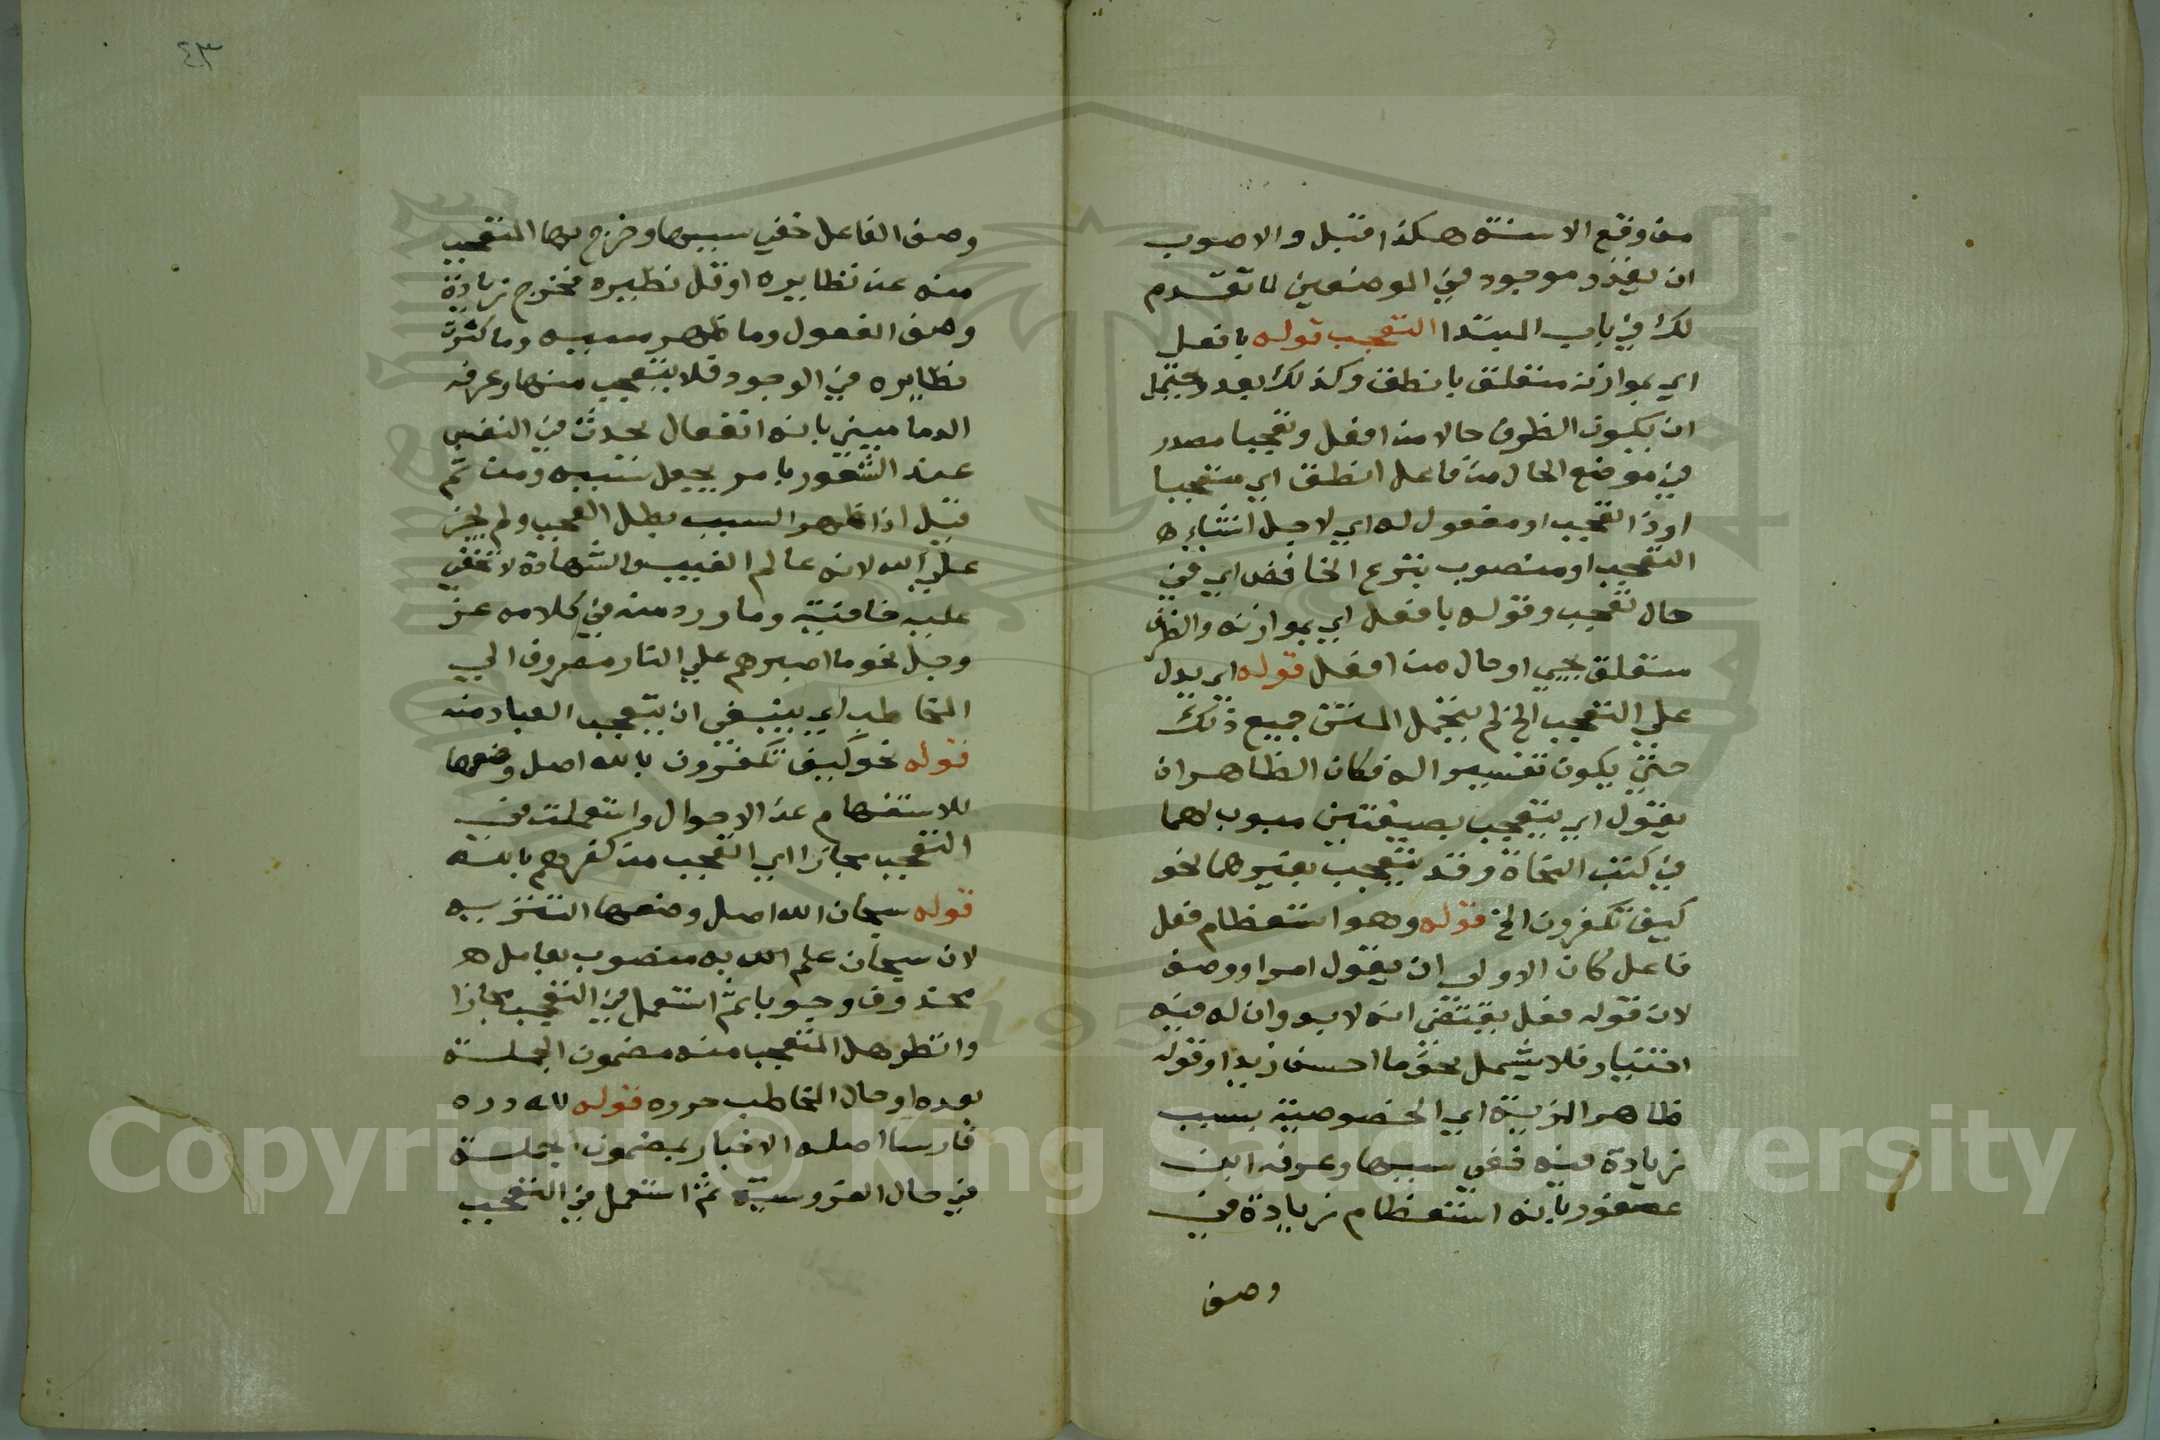 من وقع الاسنة هكذا قيل والاصوب
ان يقدر موجود في الموضعين لما تقدم
لك في باب المبتدا التعجب قوله بافعل
اي بموازنه متعلق بانطق وكذلك بعد ويحتمل
ان يكون الظرف حالا من افعل وتعجبا مصدر
في موضع الحال من فاعل انطق اي متعجبا
او ذا تعجب او مفعول له اي لاجل انشاء
التعجب او منصوب بنزع الخافض اي في
حال تعجب وقوله بافعل اي بموازنه والظرف
متعلق بجئ او حال من افعل قوله اي يدل
على التعجب الخ لم يحتمل المتن جميع ذلك
حتى يكون تفسيرا له فكان الظاهر ان
يقول اي يتعجب بصيغتين مبوب لهما
في كتب النحاة وقد يتعجب بغيرهما نحو
كيف تكفرون الخ قوله وهو استعظام فعل
فاعل كان الاولى ان يقول امرا ووصف
لان قوله فعل يقتضي انه لابد وان له فيه
اختيار فلا يشمل نحو ما احسن زيدا وقوله
ظاهر المزية اي الخصوصية بسبب
زيادة فيه خفي سببها وعرفه ابن
عصفور بانه استعظام زيادة في
وصف
٤٣
وصف الفاعل خفي سببها وخرج بها المتعجب
منه عن نظايره او قل نظيره فخرج زيادة
وصف المفعول وما ظهر سببه وما كثرت
نظايره في الوجود فلا يتعجب منها وعرفه
الدماميني بانه انفعال يحدث في النفس
عند الشعور بامر يجهل سببه ومن ثم
قيل اذا ظهر السبب بطل العجب ولم يجز
على الله لانه عالم الغيب والشهادة لا تخفى
عليه خافية وما ورد منه في كلامه عز
وجل نحو ما اصبرهم على النار مصروف الى
المخاطب اي ينبغي ان يتعجب العباد منه
قوله نحو كيف تكفرون بالله اصل وضعها
للاستفهام عن الاحوال واستعملت في
التعجب مجازا اي اتعجب من كفرهم بالله
قوله سبحان الله اصل وضعها التنزيه
لان سبحان علم له به منصوب بعامل
محذوف وجوبا ثم استعمل في التعجب مجازا
وانظر هل المتعجب منه مضمون الجملة
بعده او حال المخاطب حرره قوله لله دره
فارسا اصله الاخبار بمضمون الجملة
في حال الفروسية ثم استعمل في التعجب
Copyright © King Saud University
1957